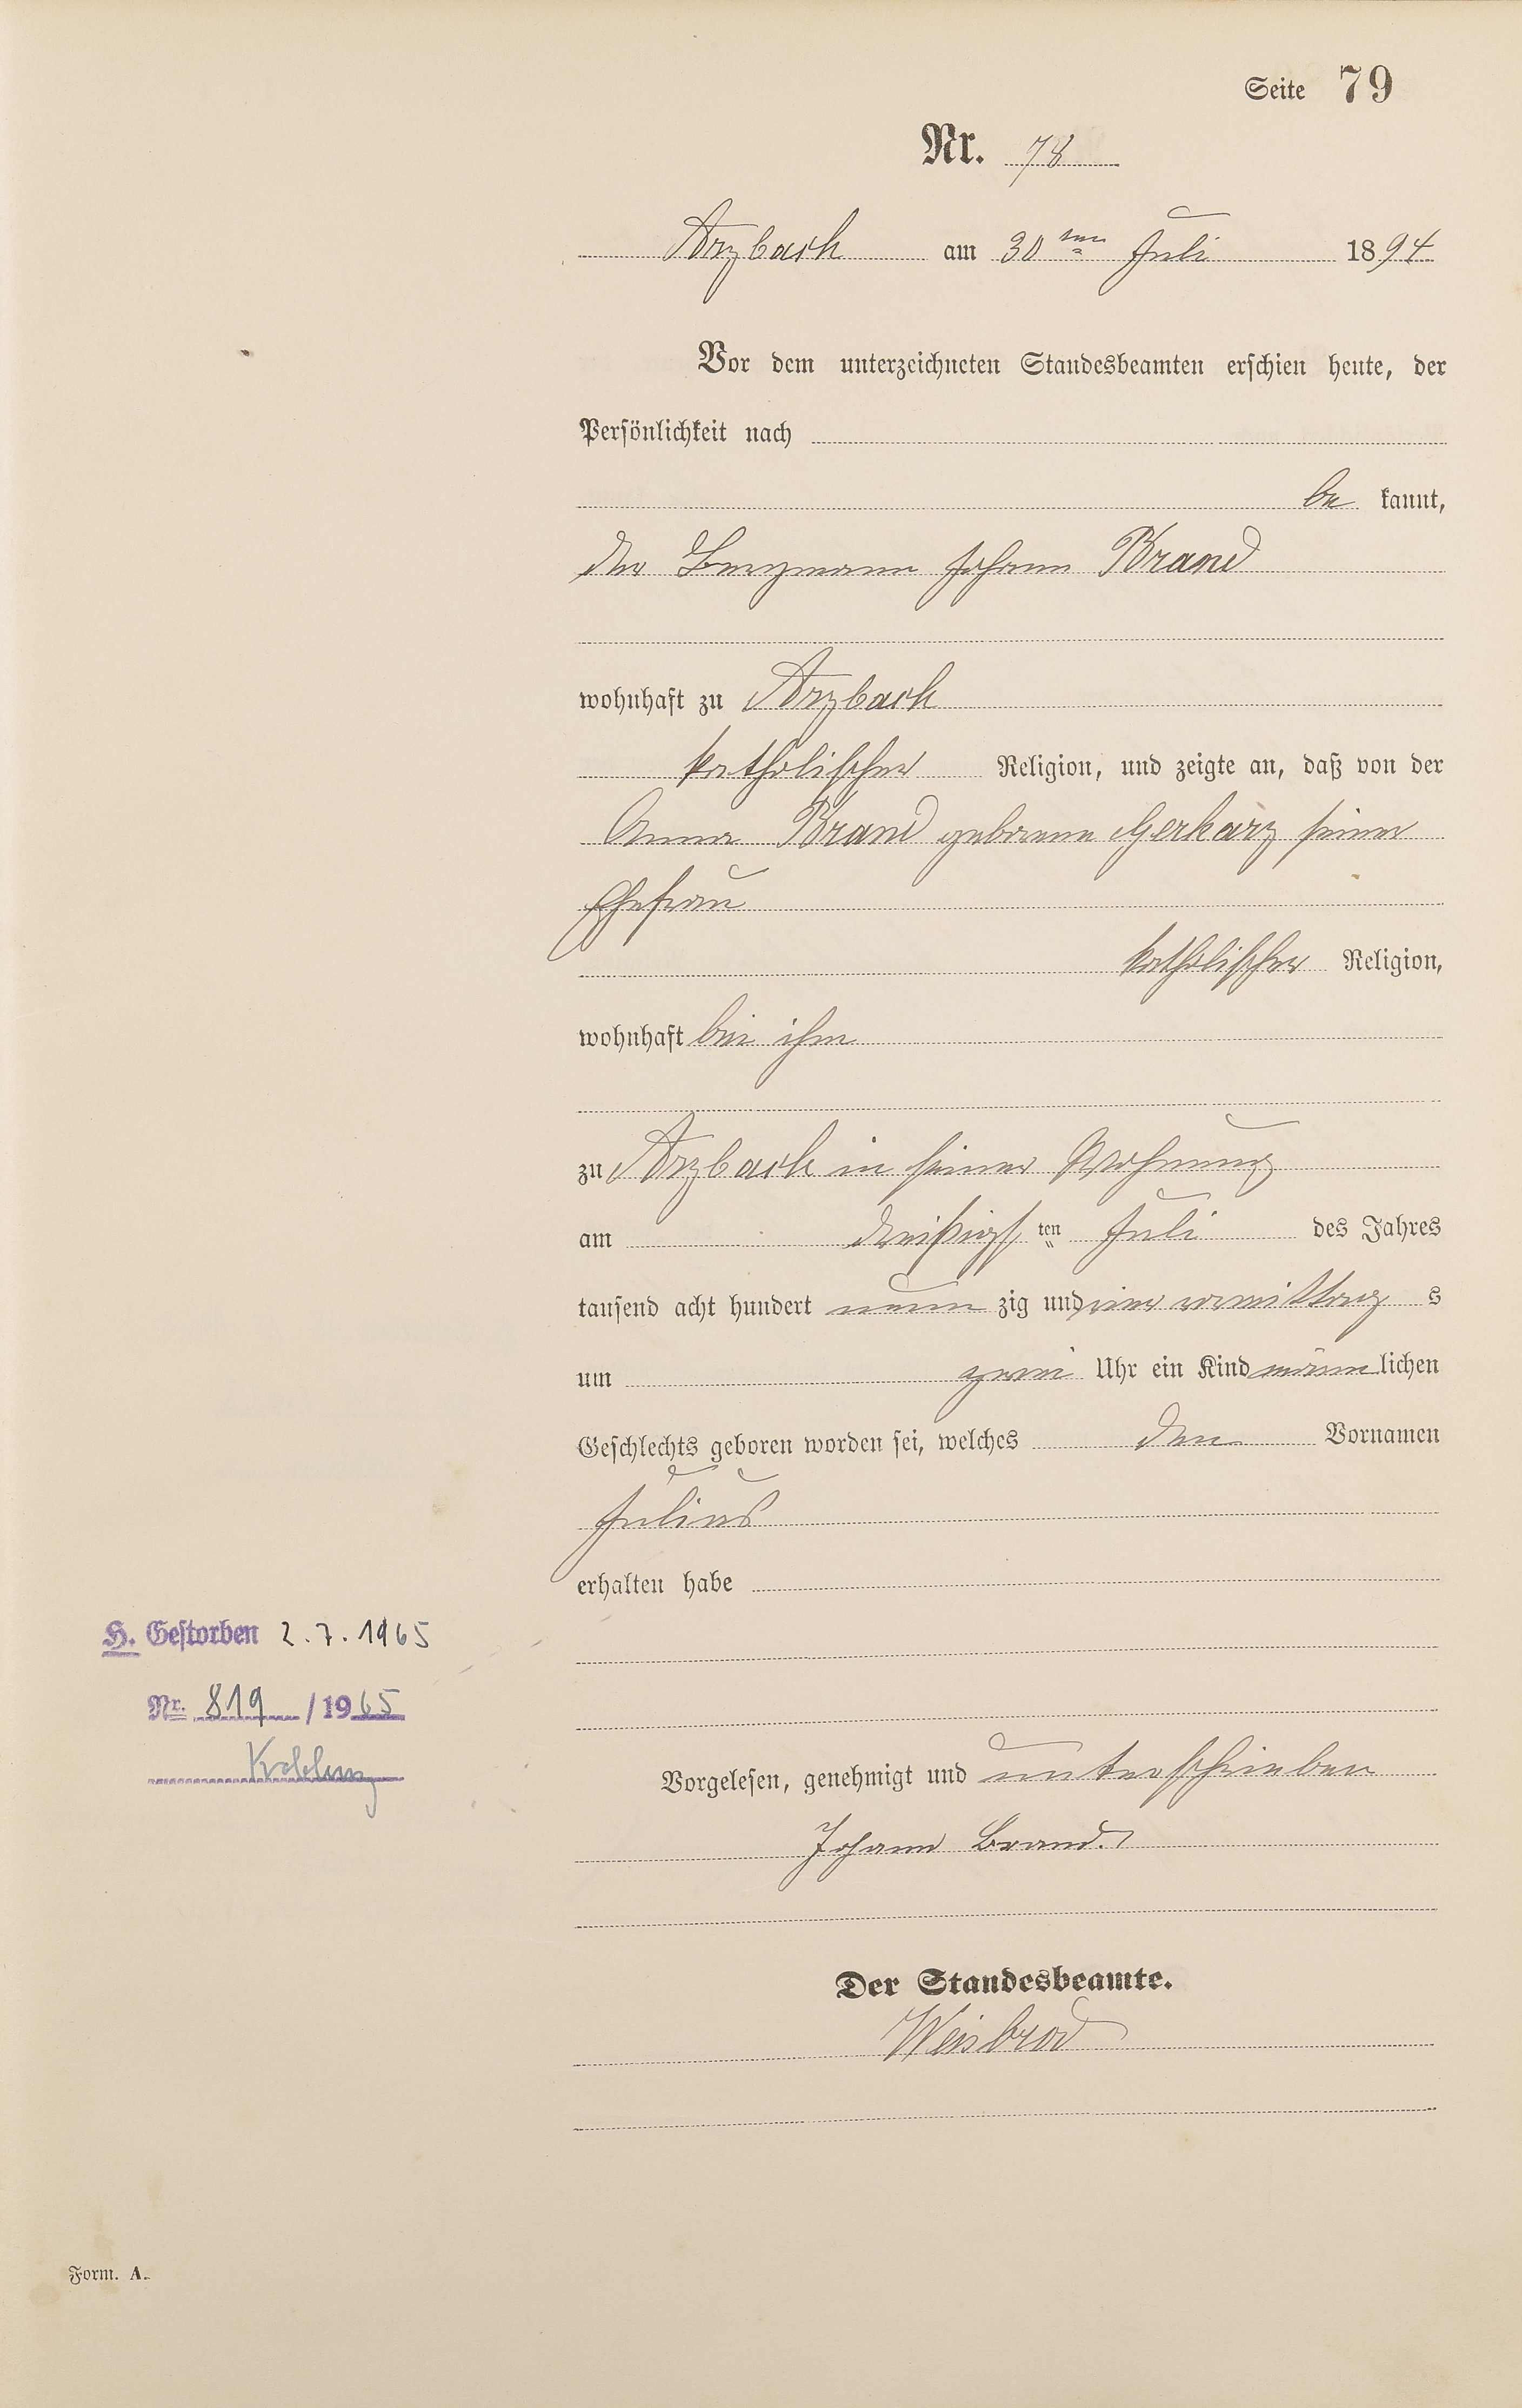 Seite 79
Nr. 78
Arzbach am 30ten Juli 1894
Vor dem unterzeichneten Standesbeamten erschien heute, der
Persönlichkeit nach
be kannt,
der Bergmann Johann Brand
wohnhaft zu Arzbach
katholischer Religion, und zeigte an, daß von der
Anna Brand geborene Gerharz seiner
Ehefrau
katholischer Religion,
wohnhaft bei ihm
zu Arzbach in seiner Wohnung
am dreißigsten Juli des Jahres
tausend acht hundert neun zig und vier vormittag s
um zwei Uhr ein Kind männlichen
Geschlechts geboren worden sei, welches den Vornamen
Julius
erhalten habe
H. Gestorben 2.7.1965
Nr. 819 / 1965
Koblenz
Vorgelesen, genehmigt und unterschrieben
Johann Brand.
Der Standesbeamte.
Weisbrod
Form. A.